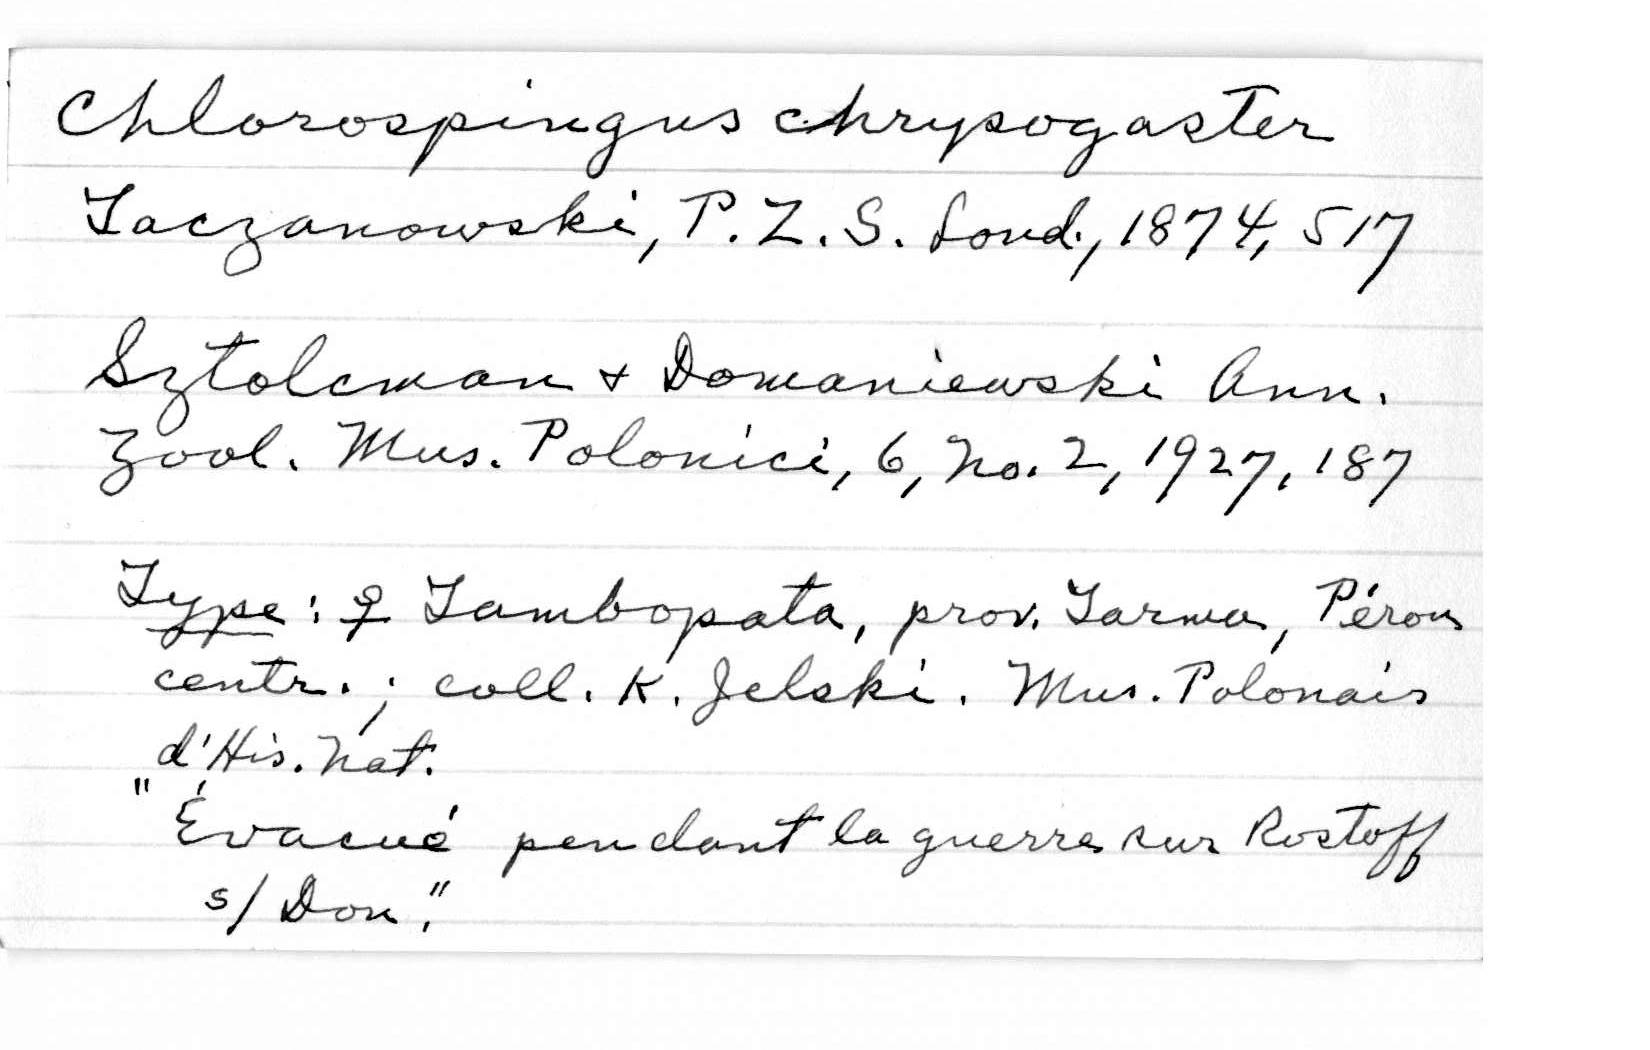 Chlorospingus chrysogaster
Taczanowski, P.Z.S. Lond., 1874, 517
Sztolcman & Domaniewski Ann.
Zool. Mus. Polonici, 6, No. 2, 1927, 187
Type: ♀ Tambopata, prov. Tarma, Pérou
centr.; coll. K. Jelski. Mus. Polonais
d'His. Nat.
"Évacué pendant la guerre sur Rostoff
s/Don."